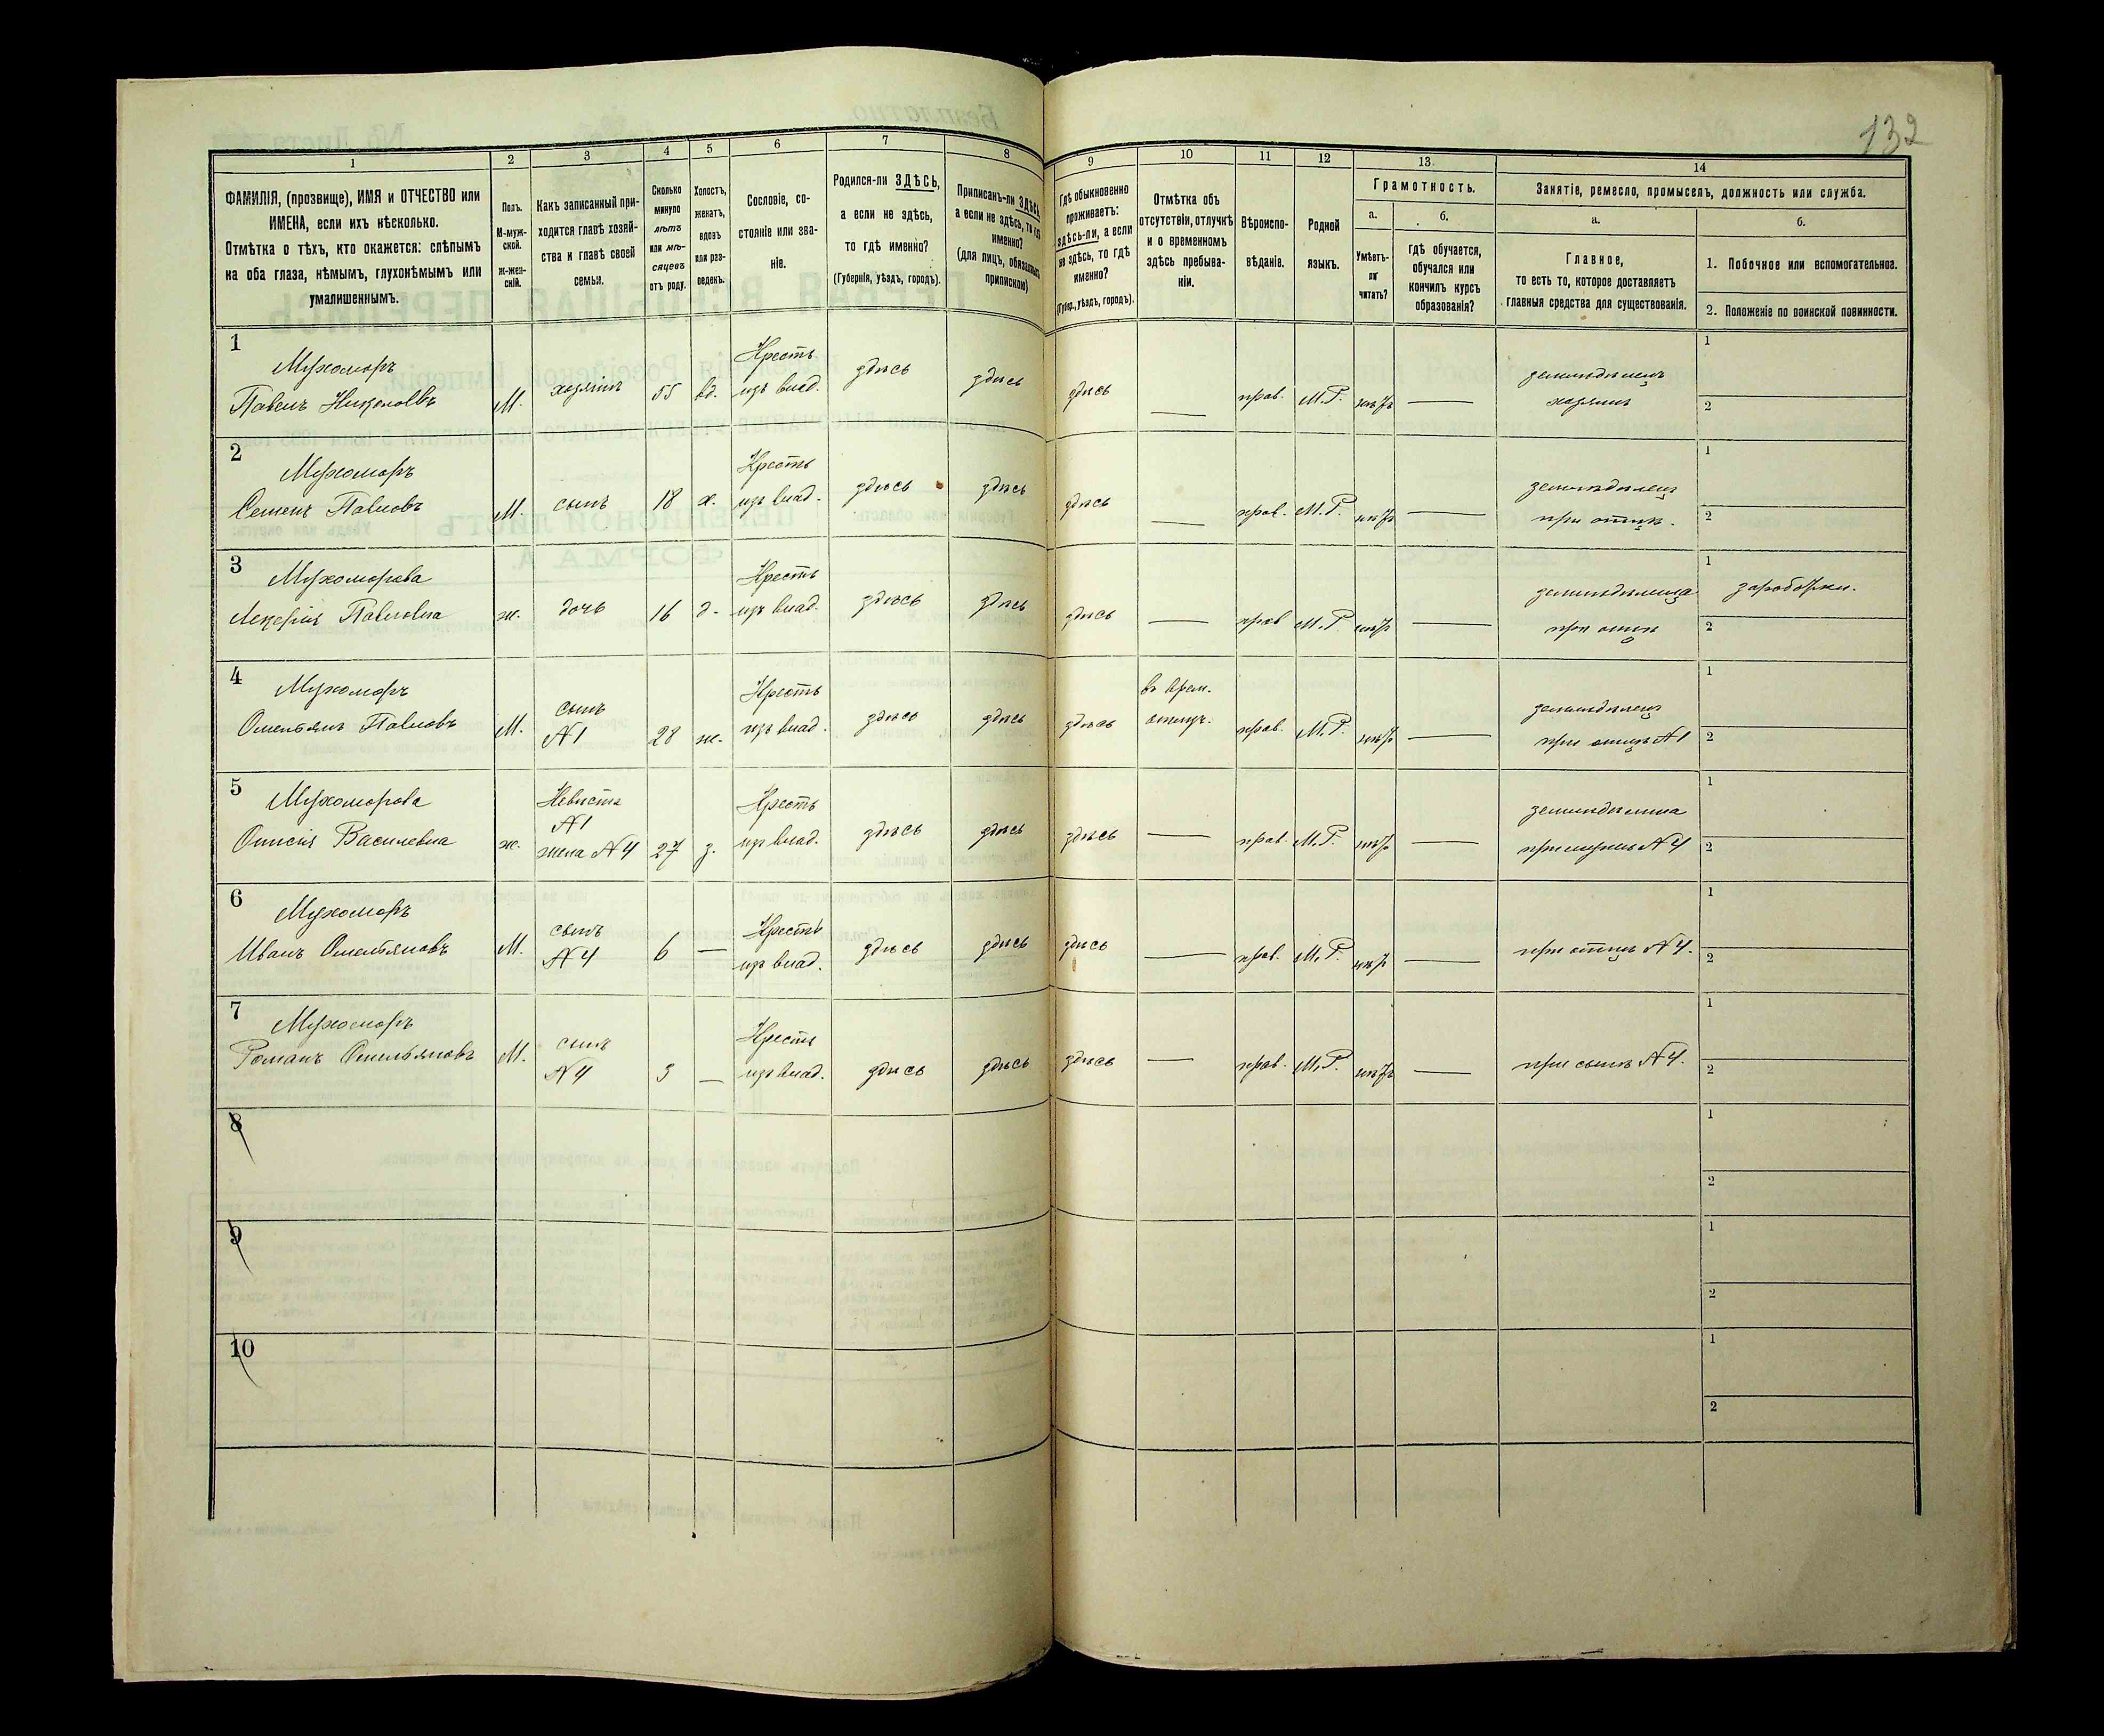 132
1
2
3
4
5
6
7
8
9
10
11
12
13.
14
ФАМИЛІЯ, (прозвище), ИМЯ и ОТЧЕСТВО или
ИМЕНА, если ихъ нѣсколько.
Отмѣтка о тѣхъ, кто окажется: слѣпымъ
на оба глаза, нѣмымъ, глухонѣмымъ или
умалишеннымъ.
Полъ.
М-муж-
ской.
ж-жен-
скій.
Какъ записанный при-
ходится главѣ хозяй-
ства и главѣ своей
семьи.
Сколько
минуло
лѣтъ
или мѣ-
сяцевъ
отъ роду.
Холостъ,
женатъ,
вдовъ
или раз-
веденъ.
Сословіе, со-
стояніе или зва-
ніе.
Родился-ли ЗДѢСЬ,
а если не здѣсь,
то гдѣ именно?
(Губернія, уѣздъ, городъ).
Приписанъ-ли ЗДѢСЬ,
а если не здѣсь, то гдѣ
именно?
(для лицъ, обязанныхъ
припискою)
Гдѣ обыкновенно
проживаетъ:
здѣсь-ли, а если
не здѣсь, то гдѣ
именно?
(Губер., уѣздъ, городъ).
Отмѣтка объ
отсутствіи, отлучкѣ
и о временномъ
здѣсь пребыва-
ніи.
Вѣроиспо-
вѣданіе.
Родной
языкъ.
Грамотность.
а.
б.
Умѣетъ-
ли
читать?
Гдѣ обучается,
обучался или
кончилъ курсъ
образованія?
Занятіе, ремесло, промыселъ, должность или служба.
а.
б.
Главное,
то есть то, которое доставляетъ
главныя средства для существованія.
1. Побочное или вспомогательное.
2. Положеніе по воинской повинности.
1
Мухоморъ
Павелъ Николаевъ
М. хозяинъ 55 вд.
Крестъ
изъ влад.
здѣсь здѣсь здѣсь — прав. М.Р. нѣтъ —
земледѣлецъ
хозяинъ
1
2
2
Мухоморъ
Семенъ Павловъ
М. сынъ 18 х.
Крестъ
изъ влад.
здѣсь здѣсь здѣсь — прав. М.Р. нѣтъ
земледѣлецъ
при отцѣ.
1
2
3
Мухоморова
Лукерія Павловна
ж. дочь 16 д.
Крестъ
изъ влад.
здѣсь здѣсь здѣсь — прав М.Р. нѣтъ —
земледѣлица
при отцѣ
1
заработки.
2
4
Мухоморъ
Омельянъ Павловъ
М.
сынъ
№1
28 ж.
Крестъ
изъ влад.
здѣсь здѣсь здѣсь
въ врем.
отлуч.
прав. М.Р. нѣтъ —
земледѣлецъ
при отцѣ №1
1
2
5
Мухоморова
Василевна
ж.
Невѣстка
№1
жена №4
27 з.
Крестъ
изъ влад.
здѣсь здѣсь здѣсь — прав. М.Р. нѣтъ —
при мужѣ №4
1
2
6
Мухоморъ
Иванъ Омельяновъ
М.
сынъ
№4
6 —
Крестъ
изъ влад.
здѣсь здѣсь здѣсь — прав. М.Р. нѣтъ —
при отцѣ №4.
1
2
7
Мухоморъ
Романъ Омельяновъ
М.
сынъ
№4
3 —
Крестъ
изъ влад.
здѣсь здѣсь здѣсь — прав. М.Р. нѣтъ —
при сынѣ №4.
1
2
8
1
2
9
1
2
10
1
2